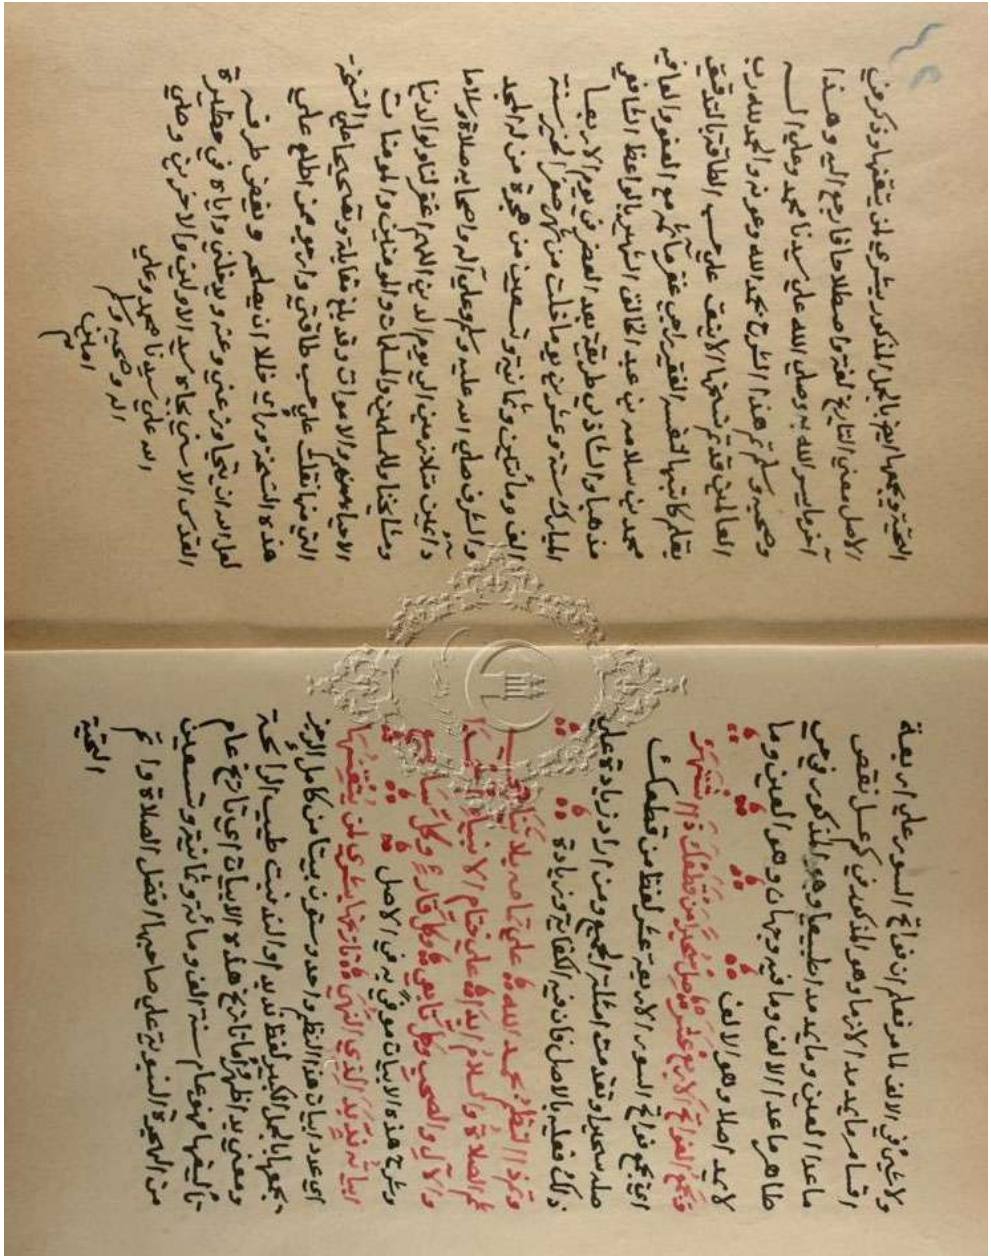 ولا غير في الالف لما مر فعلم ان فواتح السور على اربعة
اقسام ما يمد مدا لازما وهو المذكور في كم عسل نقص
ما عدا العين وما يمد مدا طبيعيا وهو المذكور في حي
طاهر ما عدا الالف وما فيه وجهان وهو العين وما
لا يمد اصلا وهو الالف
ويجمع الفواتح الاربع عشر صله سحيرا من قطعك ذا اشتهر
اي يجمع فواتح السور الاربعة عشر لفظ من قطعك
صله سحيرا وتقدمت امثلة الجميع ومن اراد زيادة على
ذلك فعليه بالاصل فان فيه الكفاية وزيادة
وتم ذا النظم بحمد الله على تمامه بلا تناهي
ثم الصلاة والسلام ابدا على ختام الانبياء احمدا
والآل والصحب وكل تابع وكل قارئ وكل سامع
وشرح هذه الابيات موفى به في الاصل
ابياته ند بدا لذي النهى تاريخها بشرى لمن يتقنها
اي عدد ابيات هذا النظم واحد وستون بيتا من كامل الرجز
يجمعها بالجمل الكبير لفظ ند بدا والند نبت طيب الرائحة
ومعنى بدا ظهر واما تاريخ هذه الابيات اي تاريخ عام
تأليفها فهو عام سنة الف ومائة وثمانية وتسعين
من الهجرة النبوية على صاحبها افضل الصلاة واتم
التحية
التحية ويجمعها ايضا بالجمل المذكور بشرى لمن يتقنها وذكر في
الاصل معنى التاريخ لغة واصطلاحا فارجع اليه وهذا
آخر ما يسر الله به وصلى الله على سيدنا محمد وعلى اله
وصحبه وسلم تم هذا الشرح بحمد الله وعونه والحمد لله رب
العالمين قد تم نسخها الانيق على حسب الطاقة بالتدقيق
بقلم كاتبها لنفسه الفقير راجي غفر مآثمه مع العفو والعافيه
محمد بن سلامه بن عبد الخالق الشهير بالواعظ الشافعي
مذهبا والشاذلي طريقة بعد العصر في يوم الاربعا
المبارك ستة وعشرين يوما خلت من شهر صفر الخير سنة
الف ومأتين وثمانية وتسعين من هجرة من له المجد
والشرف صلى الله عليه وسلم وعلى آله واصحابه صلاة وسلاما
دائمين متلازمين الى يوم الدين اللهم اغفر لنا ولوالدينا
ومشايخنا وللمسلمين والمسلمات والمومنين والمومنات
الاحياء منهم والاموات وقد بلغ مقابلة وتصحيحا على النسخة
التي منها نقلت على حسب طاقتي وارجو ممن اطلع على
هذه النسخة وراى خللا ان يصلحه ويغض طرفه
لعل الله ان يتجاوز عني وعنه ويدخلني واياه في حظيرة
القدس الاسنى بجاه سيد الاولين والاخرين وصلى
الله على سيدنا محمد وعلى
اله وصحبه وسلم
امين
تم